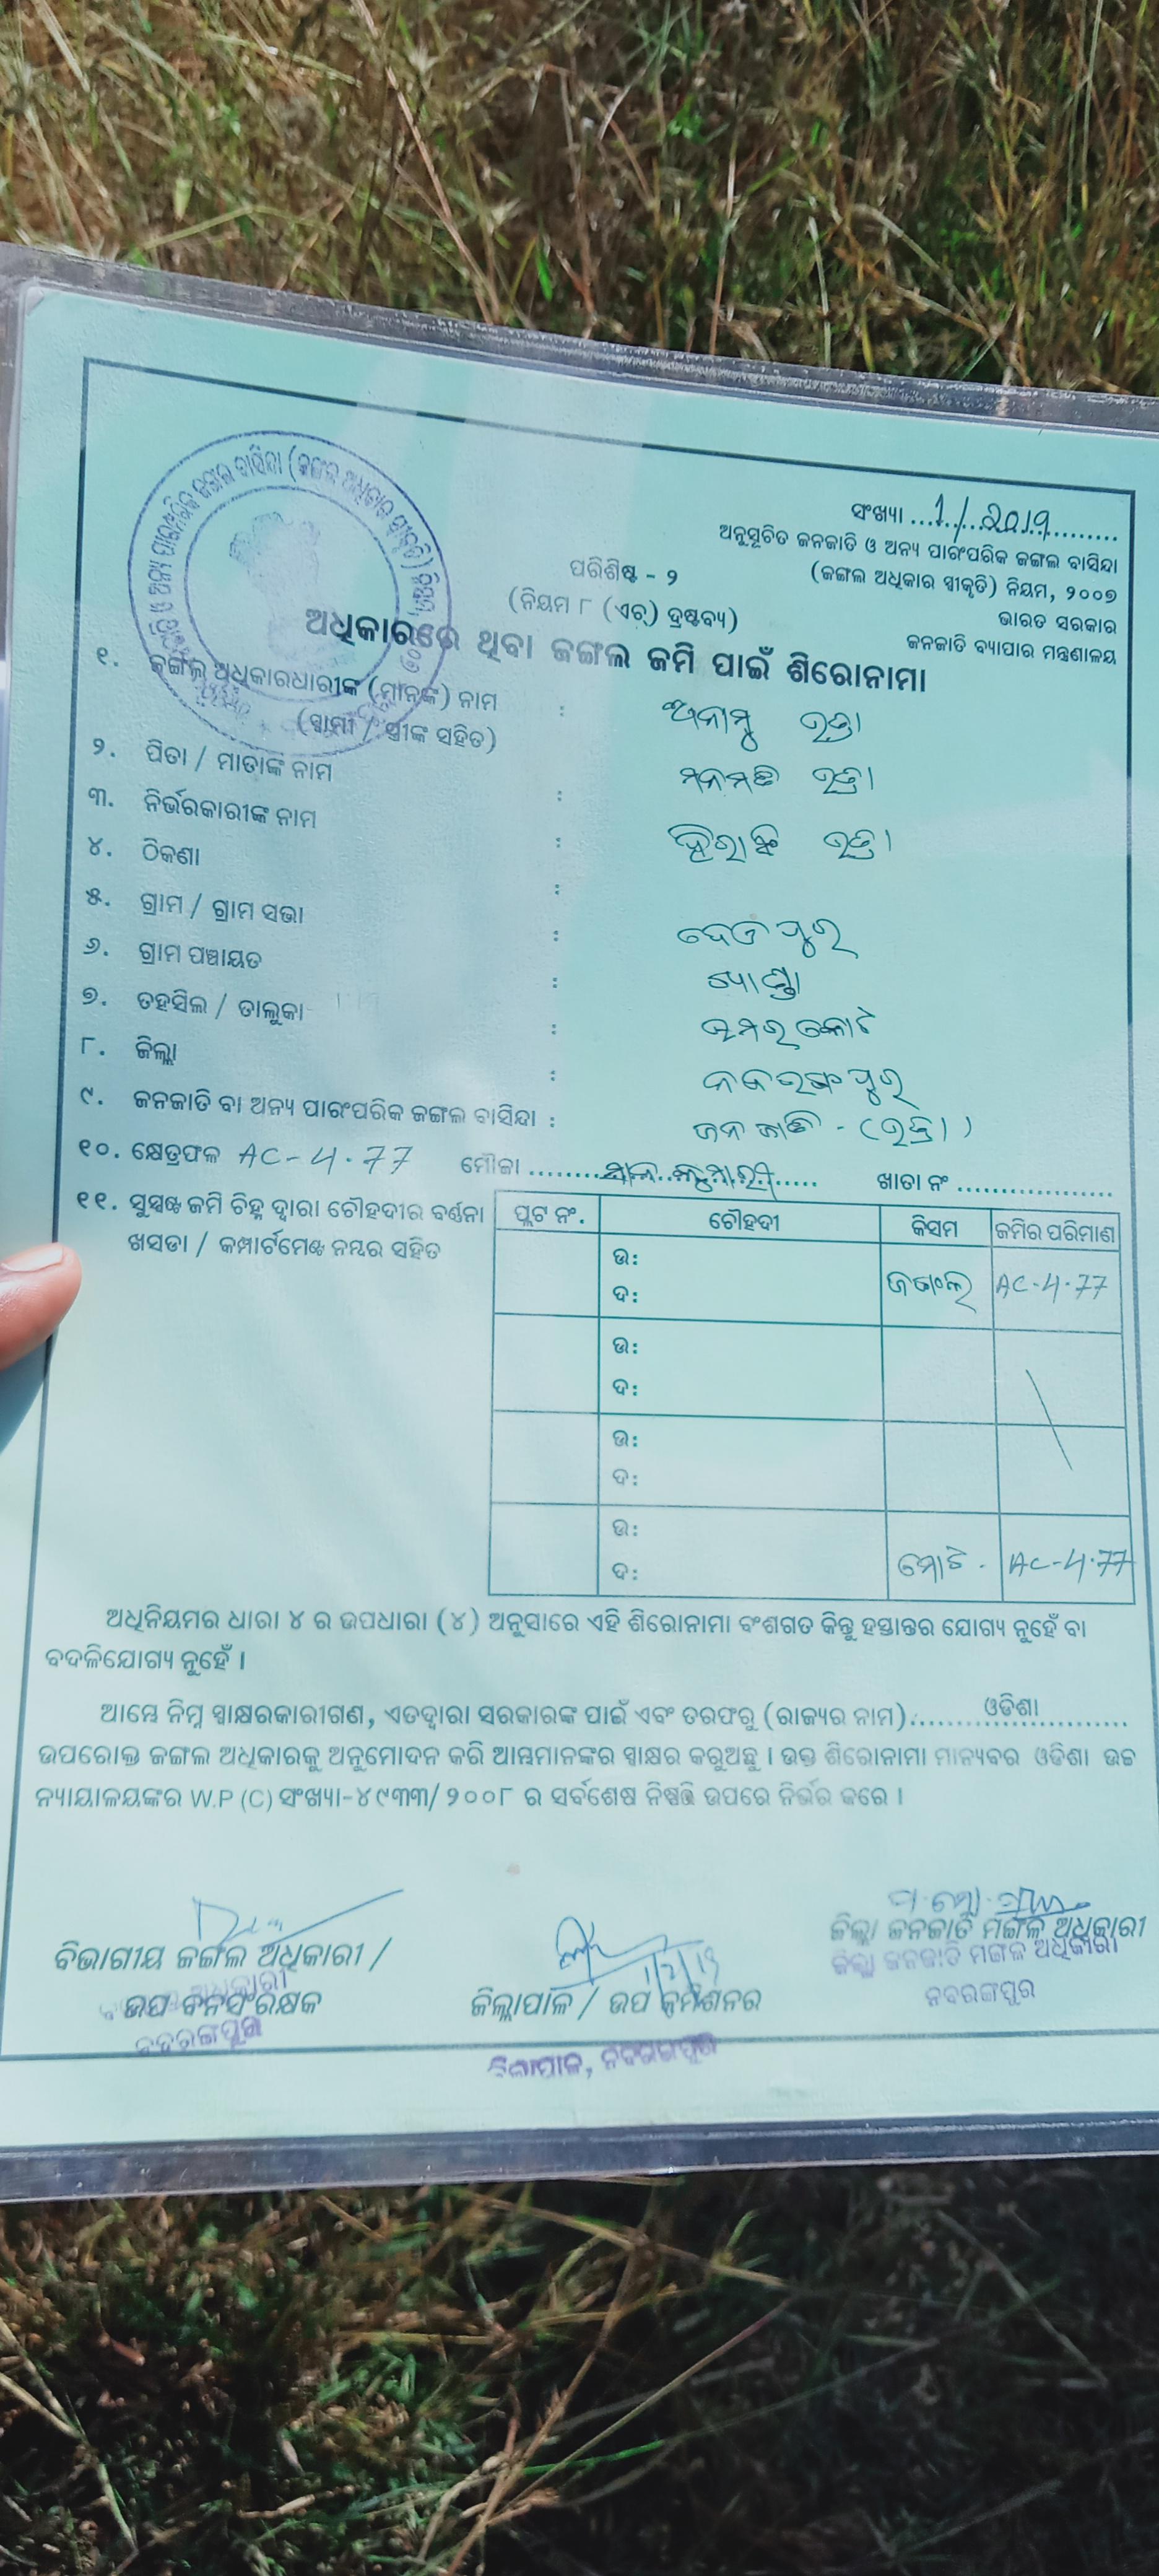 ସଂଖ୍ୟା ....1/2019....
ଅନୁସୂଚିତ ଜନଜାତି ଓ ଅନ୍ୟ ପାରଂପରିକ ଜଙ୍ଗଲ ବାସିନ୍ଦା
(ଜଙ୍ଗଲ ଅଧିକାର ସ୍ୱୀକୃତି) ନିୟମ, ୨୦୦୭
ଭାରତ ସରକାର
ଜନଜାତି ବ୍ୟାପାର ମନ୍ତ୍ରଣାଳୟ
ପରିଶିଷ୍ଟ - ୨
(ନିୟମ ୮ (ଏଚ୍) ଦ୍ରଷ୍ଟବ୍ୟ)
ଅଧିକାରରେ ଥିବା ଜଙ୍ଗଲ ଜମି ପାଇଁ ଶିରୋନାମା
୧. ଜଙ୍ଗଲ ଅଧିକାରଧାରୀଙ୍କ (ମାନଙ୍କ) ନାମ :
(ସ୍ୱାମୀ / ସ୍ତ୍ରୀଙ୍କ ସହିତ)
୨. ପିତା / ମାତାଙ୍କ ନାମ :
୩. ନିର୍ଭରକାରୀଙ୍କ ନାମ :
୪. ଠିକଣା :
୫. ଗ୍ରାମ / ଗ୍ରାମ ସଭା : ଦେଓପୁର
୬. ଗ୍ରାମ ପଞ୍ଚାୟତ :
୭. ତହସିଲ / ତାଲୁକା : ଉମରକୋଟ
୮. ଜିଲ୍ଲା : ନବରଙ୍ଗପୁର
୯. ଜନଜାତି ବା ଅନ୍ୟ ପାରଂପରିକ ଜଙ୍ଗଲ ବାସିନ୍ଦା : ଜନଜାତି -
୧୦. କ୍ଷେତ୍ରଫଳ AC-4.77 ମୌଜା ........ ଖାତା ନଂ ........
୧୧. ସୁସ୍ପଷ୍ଟ ଜମି ଚିହ୍ନ ଦ୍ୱାରା ଚୌହଦୀର ବର୍ଣ୍ଣନା
ଖସଡା / କମ୍ପାର୍ଟମେଣ୍ଟ ନମ୍ବର ସହିତ
ପ୍ଲଟ ନଂ. ଚୌହଦୀ କିସମ ଜମିର ପରିମାଣ
ଉ:
ଦ: ଜଙ୍ଗଲ AC-4.77
ଉ:
ଦ:
ଉ:
ଦ:
ଉ:
ଦ: ମୋଟ - AC-4.77
ଅଧିନିୟମର ଧାରା ୪ ର ଉପଧାରା (୪) ଅନୁସାରେ ଏହି ଶିରୋନାମା ବଂଶଗତ କିନ୍ତୁ ହସ୍ତାନ୍ତର ଯୋଗ୍ୟ ନୁହେଁ ବା
ବଦଳିଯୋଗ୍ୟ ନୁହେଁ ।
ଆମ୍ଭେ ନିମ୍ନ ସ୍ୱାକ୍ଷରକାରୀଗଣ, ଏତଦ୍ୱାରା ସରକାରଙ୍କ ପାଇଁ ଏବଂ ତରଫରୁ (ରାଜ୍ୟର ନାମ)....ଓଡିଶା....
ଉପରୋକ୍ତ ଜଙ୍ଗଲ ଅଧିକାରକୁ ଅନୁମୋଦନ କରି ଆମ୍ଭମାନଙ୍କର ସ୍ୱାକ୍ଷର କରୁଅଛୁ । ଉକ୍ତ ଶିରୋନାମା ମାନ୍ୟବର ଓଡିଶା ଉଚ୍ଚ
ନ୍ୟାୟାଳୟଙ୍କର W.P (C) ସଂଖ୍ୟା-୪୯୩୩/୨୦୦୮ ର ସର୍ବଶେଷ ନିଷ୍ପତ୍ତି ଉପରେ ନିର୍ଭର କରେ ।
ବିଭାଗୀୟ ଜଙ୍ଗଲ ଅଧିକାରୀ /
ଉପ ବନସଂରକ୍ଷକ
ନବରଙ୍ଗପୁର
ଜିଲ୍ଲାପାଳ / ଉପ କମିଶନର
ଜିଲ୍ଲାପାଳ, ନବରଙ୍ଗପୁର
ଜିଲ୍ଲା ଜନଜାତି ମଙ୍ଗଳ ଅଧିକାରୀ
ଜିଲ୍ଲା ଜନଜାତି ମଙ୍ଗଳ ଅଧିକାରୀ
ନବରଙ୍ଗପୁର